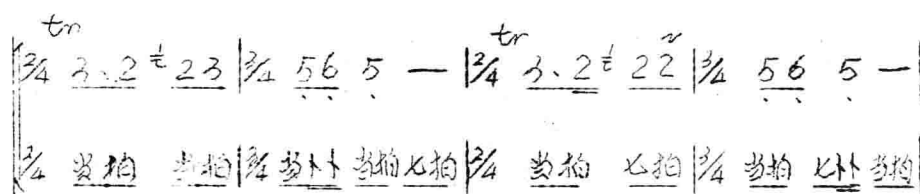 tr tr
2/4 3.2 1 23 | 3/4 56 5 — | 2/4 3.2 1 22 | 3/4 56 5 —
2/4 当拍 当拍 | 3/4 当卜卜 当拍 七拍 | 2/4 当拍 七拍 | 3/4 当拍 七卜卜 当拍